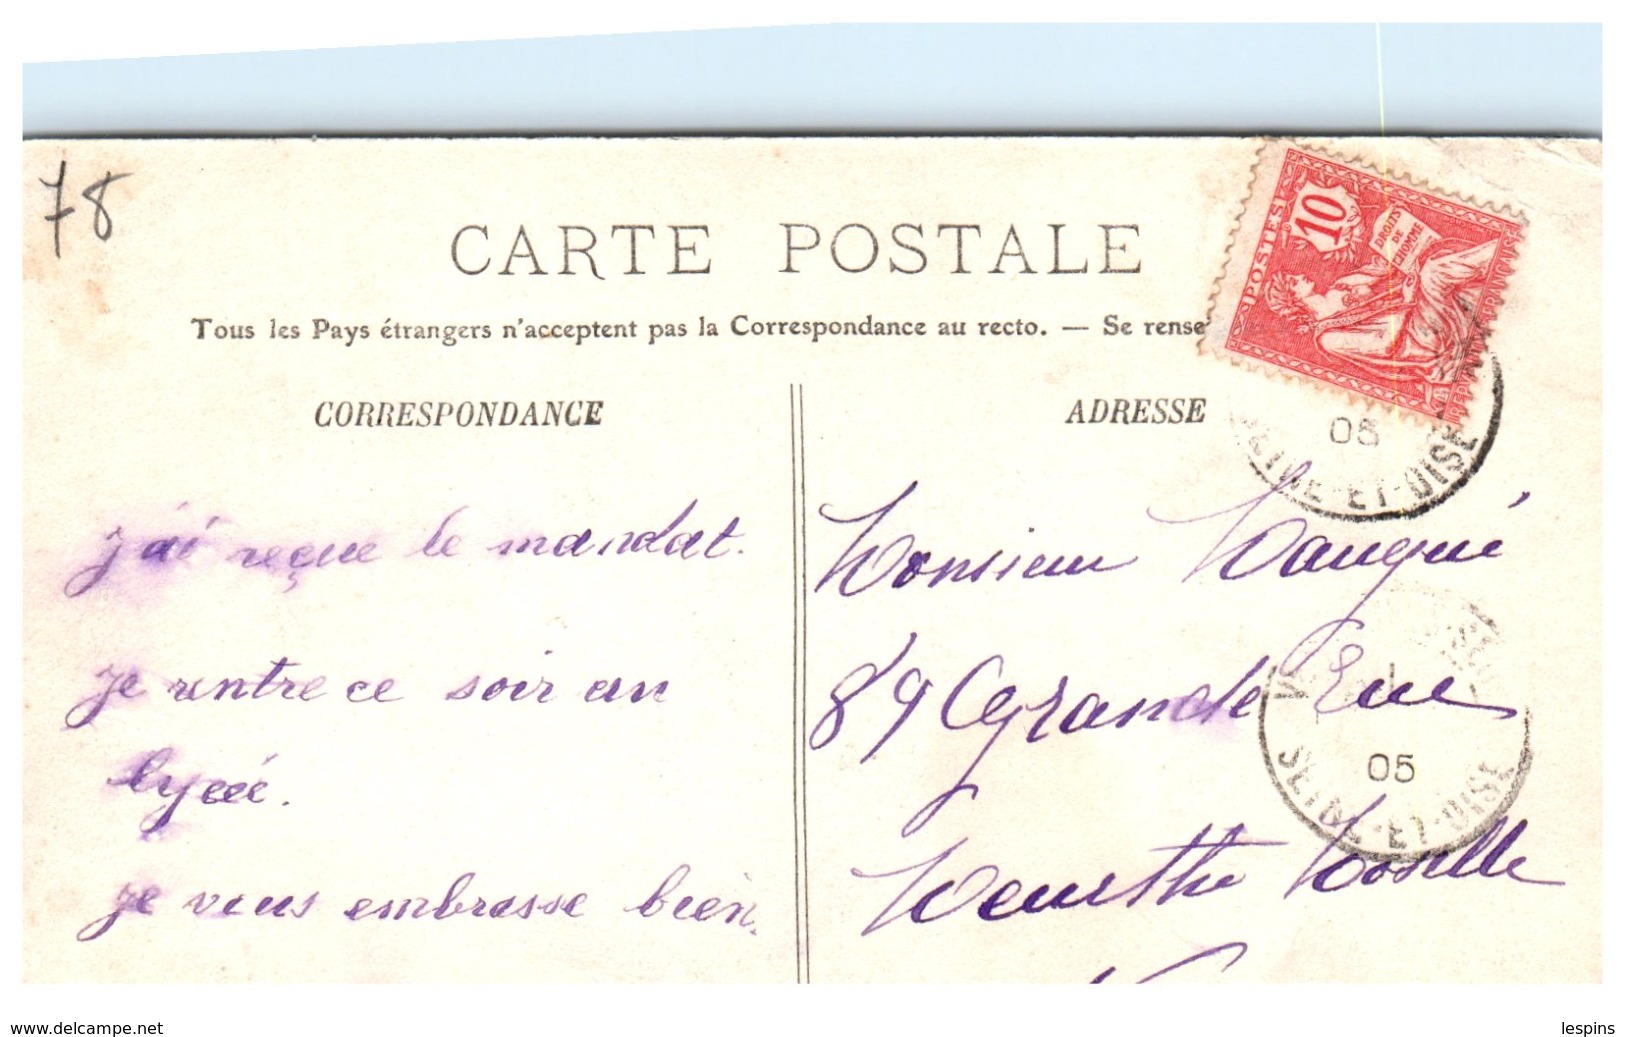 78
CARTE POSTALE
Tous les Pays étrangers n'acceptent pas la Correspondance au recto. — Se rense
POSTES
10
DROITS
DE
L'HOMME
CORRESPONDANCE
ADRESSE
05
SEINE-ET-OISE
j'ai reçue le mandat.
je rentre ce soir au
lycée.
je vous embrasse bien.
Monsieur Maugué
89 Grande Rue
Meurthe Moselle
05
SEINE-ET-OISE
www.delcampe.net
lespins